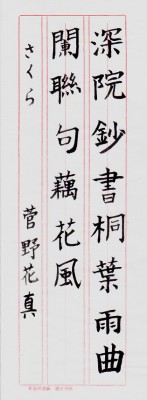 深院鈔書桐葉雨曲
闌聯句藕花風
さくら 菅野花真